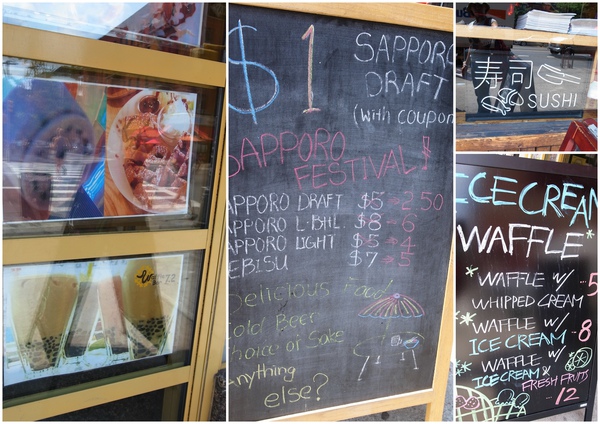 $1 SAPPORO
DRAFT
(with coupon
SAPPORO
FESTIVAL!
APPORO DRAFT $5→2.50
APPORO L·BHL $8→6
APPORO LIGHT $5→4
EBISU $7→5
Delicious Food
Cold Beer
Choice of Sake
Anything
else?
寿司
SUSHI
ICECREAM
WAFFLE*
*WAFFLE W/ 5
WHIPPED CREAM
*WAFFLE W/
ICE CREAM -8
*WAFFLE W/
ICECREAM &
FRESH FRUITS
12